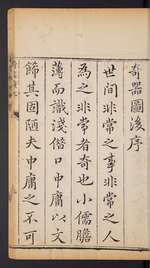 奇器圖後序
世間非常之事非常之人
為之非常者奇也小儒膽
薄而識淺偕口中庸以文
飾其固陋夫中庸之不可